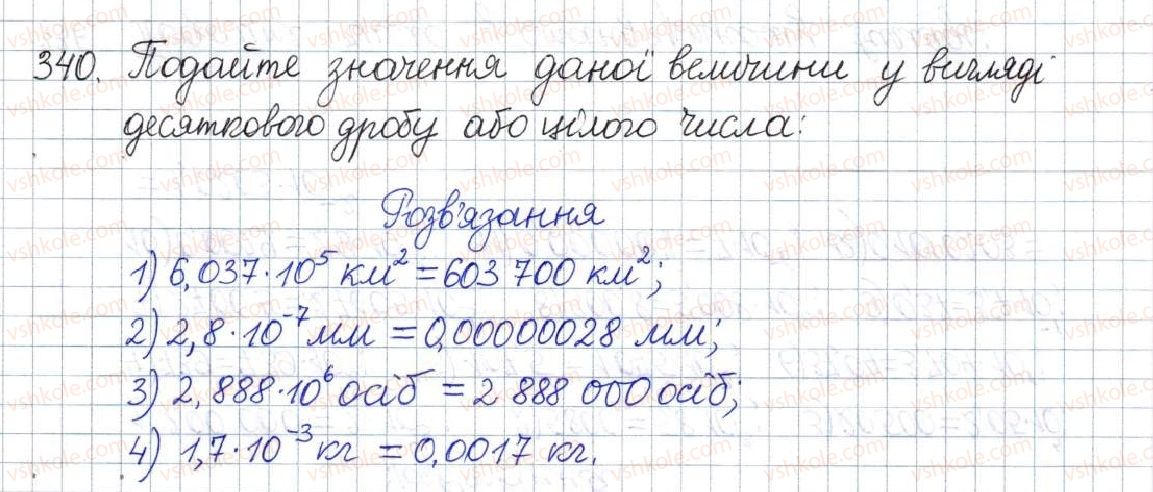 340. Подайте значення даної величини у вигляді
десяткового дробу або цілого числа:
Розв'язання
1) 6,037·10⁵ км² = 603 700 км²;
2) 2,8·10⁻⁷ мм = 0,00000028 мм;
3) 2,888·10⁶ осіб = 2 888 000 осіб;
4) 1,7·10⁻³ кг = 0,0017 кг.